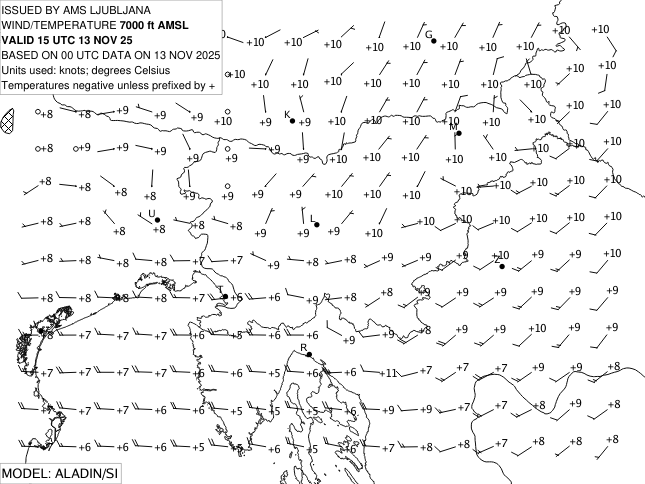 ISSUED BY AMS LJUBLJANA
WIND/TEMPERATURE 7000 ft AMSL
VALID 15 UTC 13 NOV 25
BASED ON 00 UTC DATA ON 13 NOV 2025
Units used: knots; degrees Celsius
Temperatures negative unless prefixed by +
+10 +10 +10 +10 G +10 +10 +10 +10
+10 +10 +10 +10 +10 +10 +10 +10 +10 +10
+8 +8 +9 +9 +10 +9 K +9 +10 +10 +10 +10 M +10 +10 +10 +10
+8 +9 +9 +9 +9 +9 +9 +9 +10 +10 +10 +10 +10 +10 +10 +10
+8 +8 +8 +8 +9 +9 +9 +10 +10 +10 +10 +10 +10 +10 +10
+8 +8 +8 U +8 +8 +8 +9 L +9 +9 +10 +10 +10 +10 +10 +10
+8 +8 +8 +8 +7 +9 +8 +8 +9 +9 +9 +10 Z +9 +9 +10
+8 +8 +8 +8 +8 T +6 +6 +9 +8 +9 +9 +9 +9 +9 +9
+8 +7 +7 +7 +6 +6 +6 +6 +9 +9 +8 +9 +9 +10 +9
+7 +7 +7 +7 +6 +6 +5 R +6 +6 +11 +7 +7 +7 +9 +9 +8
+7 +7 +7 +7 +6 +5 +5 +5 +6 +9 +9 +7 +7 +8 +9 +8
+6 +6 +6 +6 +5 +5 +5 +6 +7 +8 +8 +7 +8 +8 +8
MODEL: ALADIN/SI